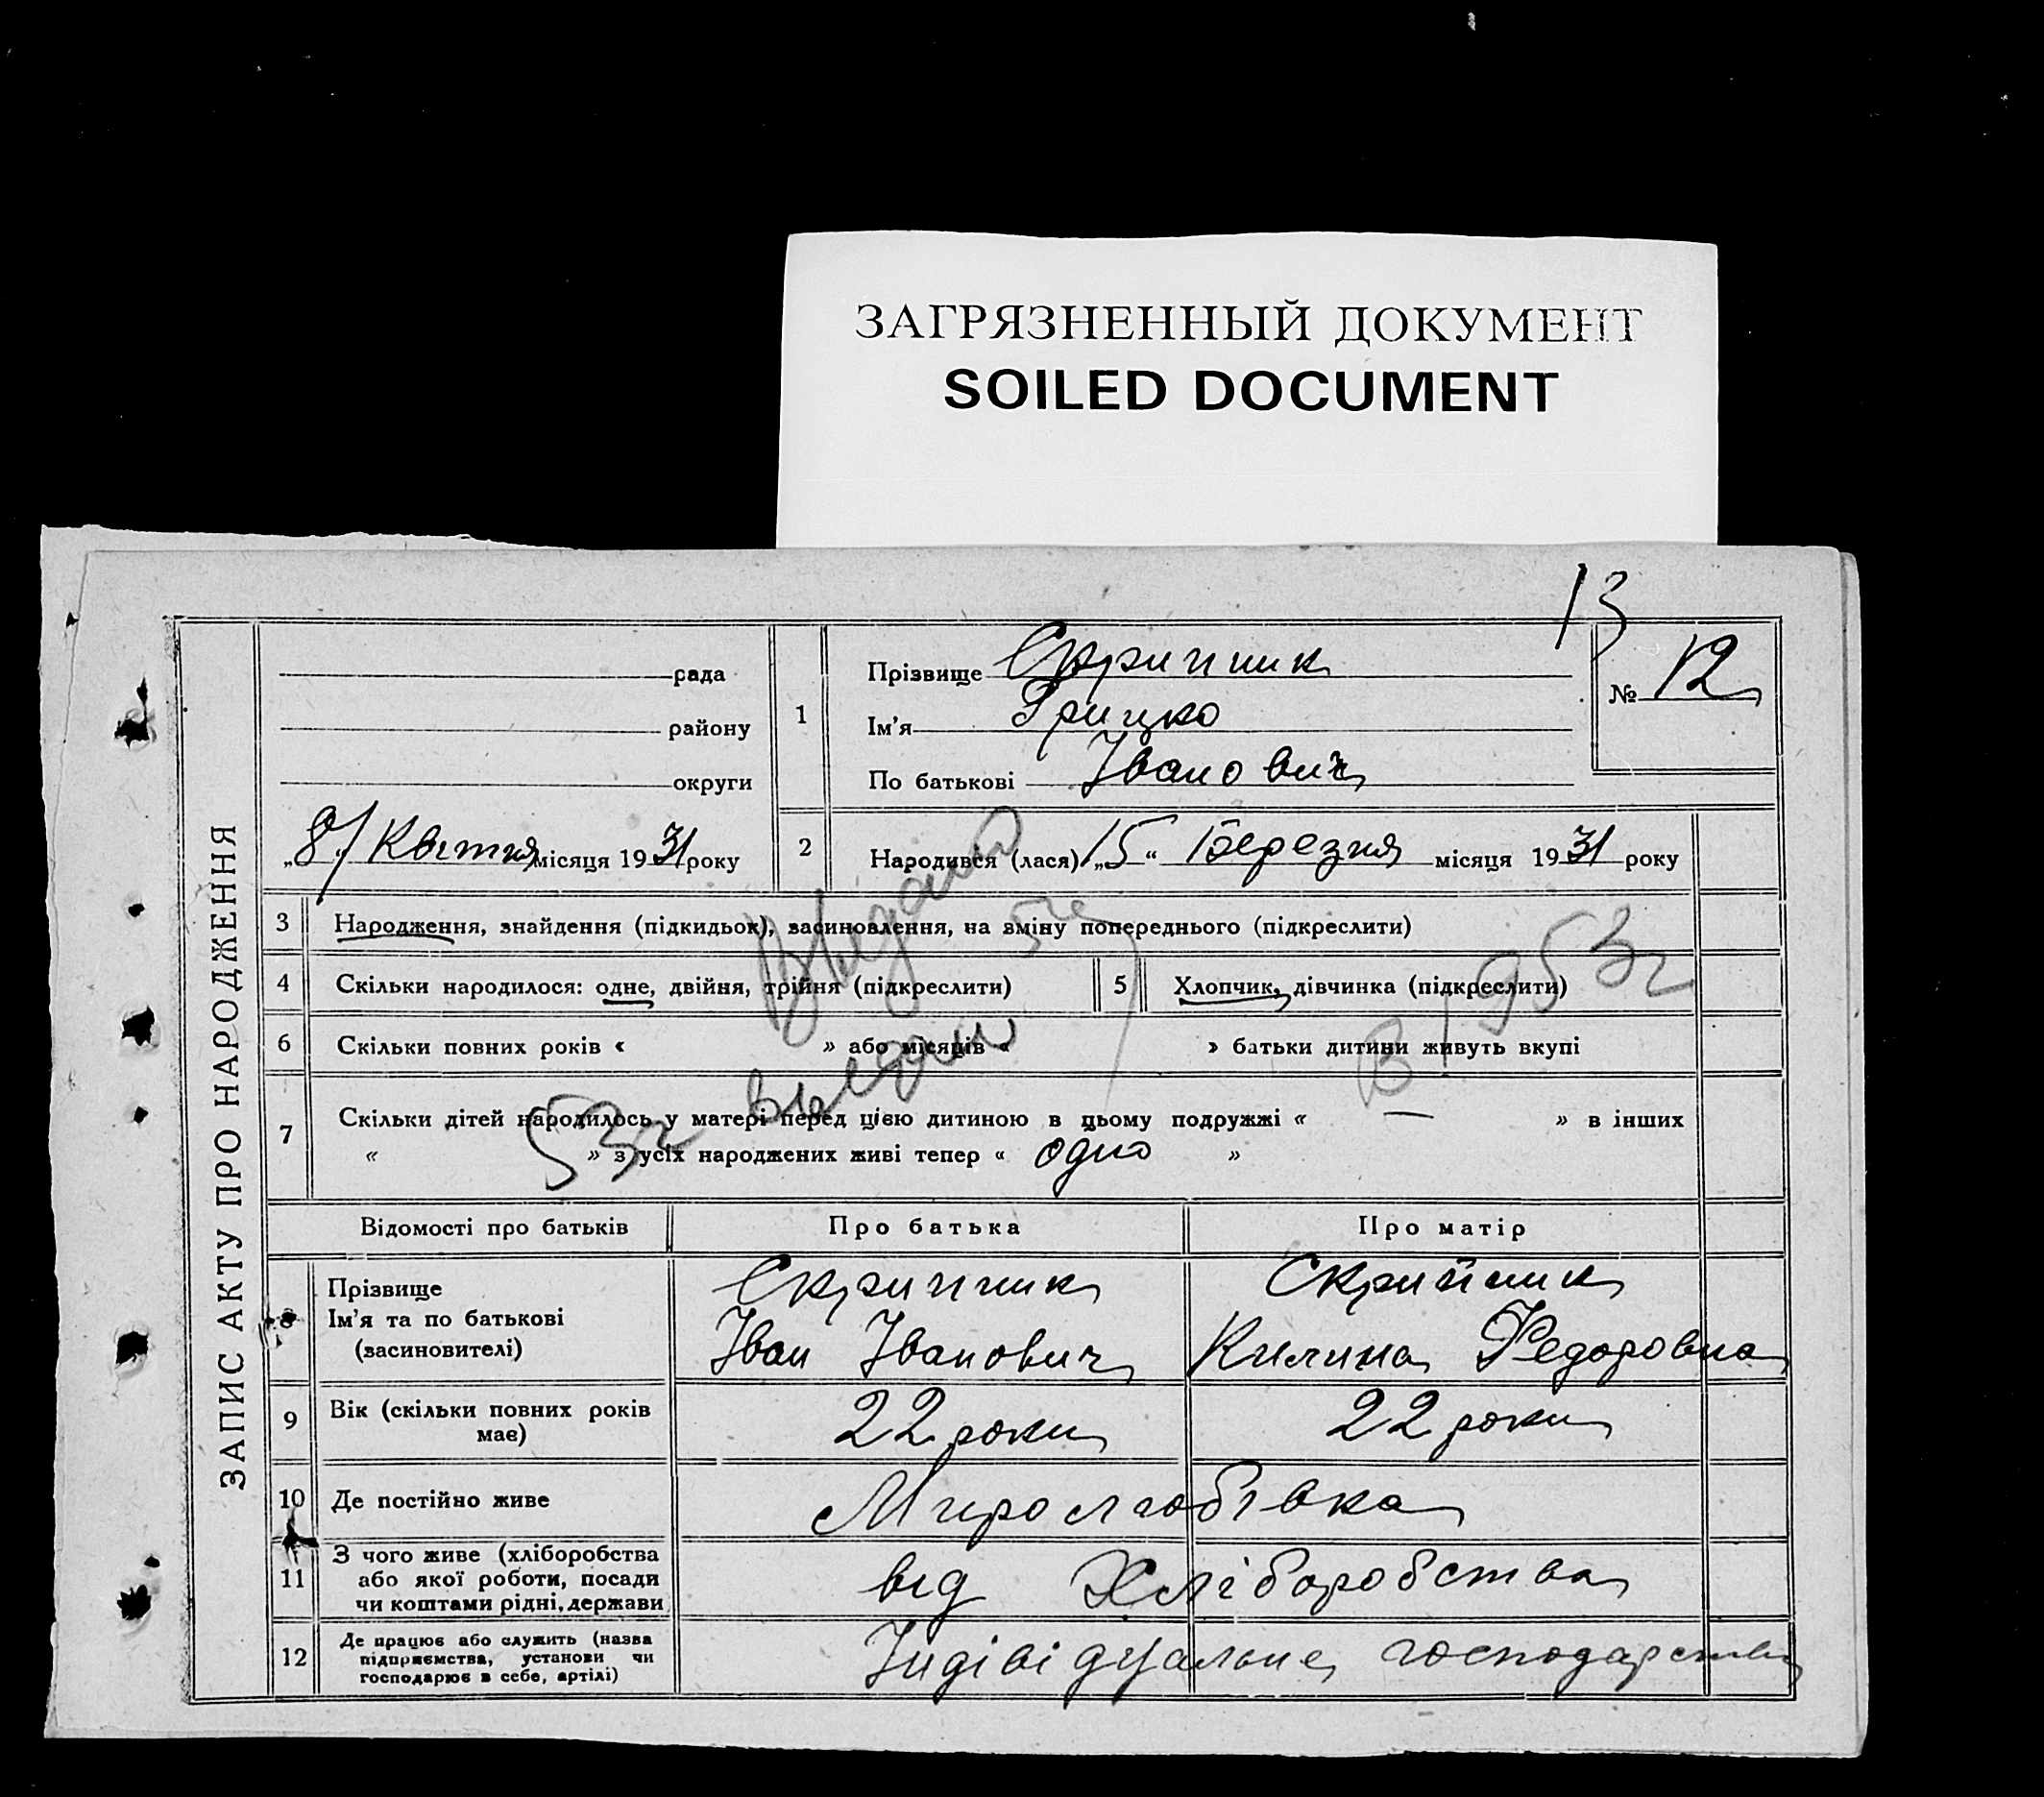 ЗАГРЯЗНЕННЫЙ ДОКУМЕНТ
SOILED DOCUMENT
13
ЗАПИС АКТУ ПРО НАРОДЖЕННЯ
рада
району
округи
„8“ Квітня місяця 1931 року
1
Прізвище Скрипник
Ім'я Грицко
По батькові Іванович
№ 12
2
Народився (лася) „15“ Березня місяця 1931 року
3 Народження, знайдення (підкидьок), засиновлення, на зміну попереднього (підкреслити)
4 Скільки народилося: одне, двійня, трійня (підкреслити)
5 Хлопчик, дівчинка (підкреслити)
6 Скільки повних років « » або місяців « » батьки дитини живуть вкупі
7 Скільки дітей народилось у матері перед цією дитиною в цьому подружжі « — » в інших
« » з усіх народжених живі тепер « одно »
53г
Відомості про батьків Про батька Про матір
8 Прізвище
Ім'я та по батькові
(засиновителі)
Скрипник
Іван Іванович
Скрипник
Килина Федоровна
9 Вік (скільки повних років
має)
22 роки 22 роки
10 Де постійно живе Миролюбівка
11 З чого живе (хліборобства
або якої роботи, посади
чи коштами рідні, держави
від Хліборобства
12 Де працює або служить (назва
підприємства, установи чи
господарює в себе, артілі)
Індівідуальне господарство